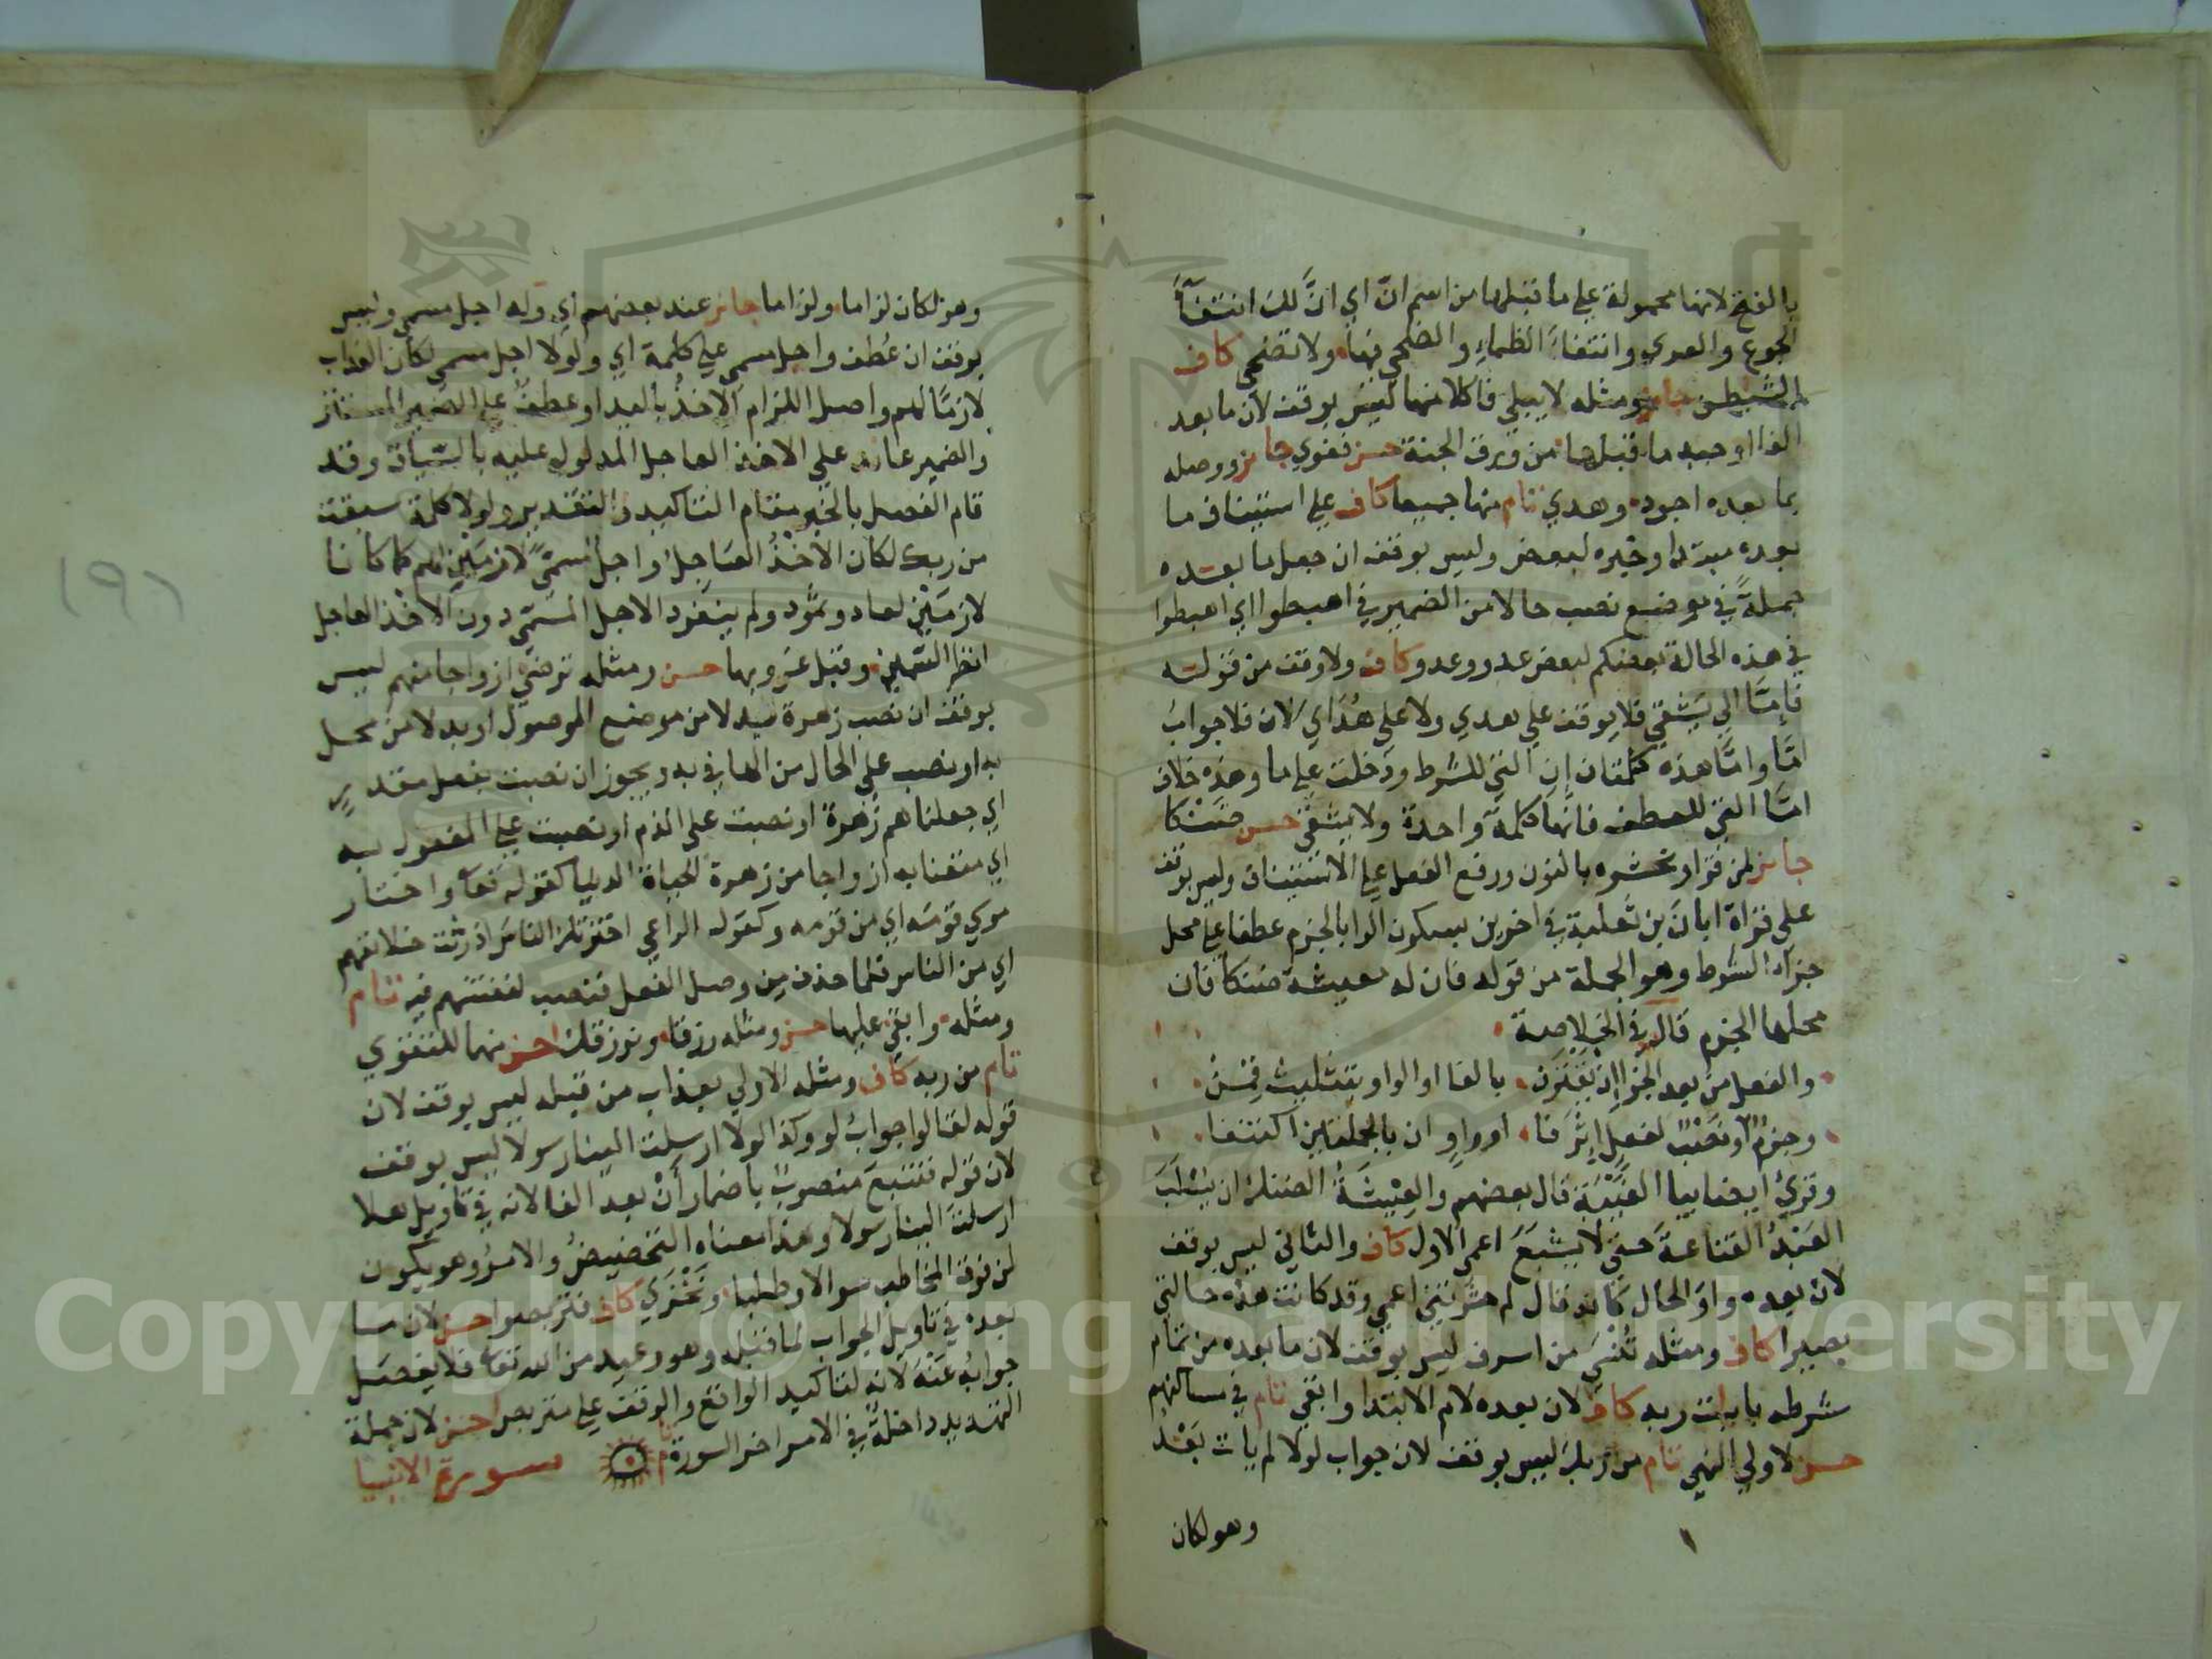 بالفتح لانها محمولة على ما قبلها من اسم انّ اي انَّ لك انتفآءَ
الجوع والعري وانتفاءَ الظماءِ والضحى فيها ولا تضحى كاف
الشيطن جايز ومثله لا يبلى فاكلا منها ليس بوقف لان ما بعد
الفا اوجبه ما قبلها من ورق الجنة حسن فغوي جايز ووصله
بما بعده اجود وهدي تام منها جميعا كاف على استيناف ما
بعده مبتدا وخبره لبعض وليس بوقف ان جعل ما بعده
جملةً في موضع نصب حالا من الضمير في اهبطوا اي اهبطوا
في هذه الحالة بعضكم لبعض عدو وعدو كاف ولا وقف من قوله
فامّا الى يشقى فلا يوقف على هدي ولا على هُدَاي لان فلا جوابُ
امّا وامّا هذه كلمتان إن التي للشرط ودخلت على ما وهذه خلاف
امّا التي للعطف فانها كلمة واحدة ولا يشقى حسن ضنكا
جايز لمن قرا ونحشره بالنون ورفع الفعل على الاستيناف وليس بوقف
على قراة ابان بن تعلبة في اخرين بسكون الرا بالجزم عطفا على محل
جزآء الشرط وهو الجملة من قوله فان له معيشة ضنكا فان
محلها الجزم قال في الخلاصة
والفعل من بعد الجزا إن يقترن بالفا او الواو بتثليث قمِن
وجزمٌ او نصبٌ لفعل إثر فا او واو ان بالجملتين اكتنفا
وقرئ ايضا بيا الغيبة قال بعضهم والعيشة الضنك ان يسلبَ
العبدُ القناعة حتى لا يشبعَ اعمى الاول كاف والثاني ليس بوقف
لان بعده واو الحال كانه قال لم حشرتني اعمى وقد كانت هذه حالتي
بصيرا كاف ومثله تُنسى من اسرف ليس بوقف لان ما بعده من تمام
شرطه بايات ربه كاف لان بعده لام الابتدا وابقى تام في مساكنهم
حسن لاولي النهي تام من ربك ليس بوقف لان جواب لولا لم يات بَعْدُ
وهو لكان
وهو لكان لزاما ولزاما جايز عند بعضهم اي وله اجل مسمى وليس
بوقف ان عُطف واجل مسمى على كلمة اي ولولا اجل مسمى لكان العذاب
لازمًا لهم واصل اللزام الاخذُ باليد او عطفٌ على الضمير المستتر
والضمير عايد على الاخذ العاجل المدلول عليه بالسّياق وقد
قام الفصل بالخبر مقام التاكيد والتقدير ولولا كلمة سبقت
من ربك لكان الاخذُ العاجلُ واجل مسمىً لازمَيْن لهم كما كانا
لازمَيْن لعاد وثمُود ولم ينفرد الاجل المسمى دون الاخذ العاجل
انظر السّمين وقبل غروبها حسن ومثله ترضى ازواجا منهم ليس
بوقف ان نصب زهرة بدلا من موضع الموصول او بدلا من محل
به او نصب على الحال من الها في به ويجوز ان نصبت بفعل مقدر
اي جعلناهم زهرةً او نصبت على الذم او نصبت على المفعول به
اي متعنا به ازواجا من زهرة الحياة الدنيا كقوله تعا واختار
موسى قومَه اي من قومه وكقوله الراعي اخترتك الناسَ اذ رثت خلائقهم
اي من الناس فلما حذف من وصل الفعل فنصب لنفتنهم فيه تام
ومثله وابقى عليها حسن ومثله رزقا ونرزقك احسن منهما للتقوي
تام من ربه كاف ومثله الاولي بعذاب من قبله ليس بوقف لان
قوله لقالوا جوابُ لو وكذا لولا ارسلت الينا رسولا ليس بوقف
لان قوله فنتبعَ منصوبٌ باضمار أنْ بعد الفا لانه في تاويل هلا
ارسلت الينا رسولا وهذا معناه التحضيضُ والامرُ وهو يكون
لمن فوق المخاطب سوالا وطلبا ونخزي كاف فتربصوا حسن لان ما
بعده في تاويل الجواب لما قبله وهو وعيد من الله تعا فلا يفصل
جوابُه عنه لانه لتاكيد الواقع والوقف على متربص احسن لان جملة
التهديد داخلةٌ في الامر اخر السورة تام سورة الانبيا
١٩١